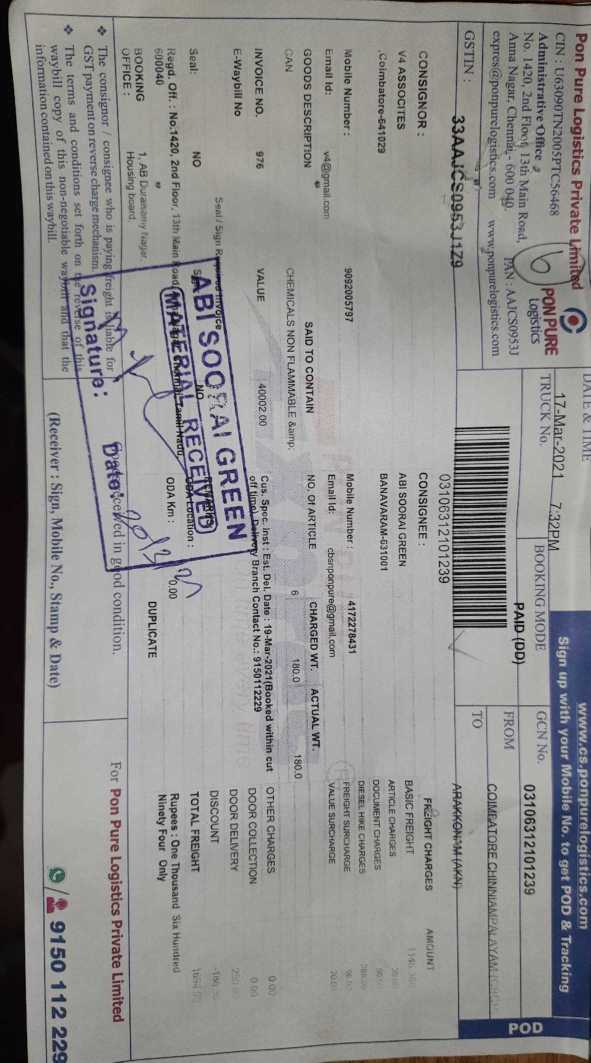 Pon Pure Logistics Private Limited
CIN : U63090TN2005PTC56468
Administrative Office :
No. 1420, 2nd Floor, 13th Main Road,
Anna Nagar, Chennai - 600 040. PAN : AAJCS0953J
expres@ponpurelogistics.com www.ponpurelogistics.com
GSTIN : 33AAJCS0953J1Z9
PON PURE
Logistics
DATE & TIME
17-Mar-2021 7:32PM
TRUCK No.
BOOKING MODE
PAID (DD)
www.cs.ponpurelogistics.com
Sign up with your Mobile No. to get POD & Tracking
POD
GCN No. 03106312101239
FROM COIMBATORE CHINNIAMPALAYAM
TO ARAKKONAM (AKN)
03106312101239
CONSIGNOR :
V4 ASSOCITES
,Coimbatore-641029
Mobile Number : 9092005797
Email Id: v4@gmail.com
CONSIGNEE :
ABI SOORAI GREEN
BANAVARAM-631001
Mobile Number : 4172278431
Email Id: cbsnponpure@gmail.com
GOODS DESCRIPTION SAID TO CONTAIN NO. Of ARTICLE CHARGED WT. ACTUAL WT.
CAN CHEMICALS NON FLAMMABLE &amp; 6 180.0 180.0
INVOICE NO. 976 VALUE 40002.00
E-Waybill No
Cus. Spec. Inst : Est. Del. Date : 19-Mar-2021(Booked within cut
off time) Delivery Branch Contact No.: 9150112229
Seal / Sign Required Invoice
Seal: NO NO ODA Location :
Regd. Off. : No.1420, 2nd Floor, 13th Main Road
600040
ODA Km : 0.00
BOOKING
OFFICE :
1, AB Duraisamy Nagar,
Housing board,
DUPLICATE
FREIGHT CHARGES AMOUNT
BASIC FREIGHT
ARTICLE CHARGES
DOCUMENT CHARGES
DIESEL HIKE CHARGES
FREIGHT SURCHARGE
VALUE SURCHARGE
OTHER CHARGES 0.00
DOOR COLLECTION 0.00
DOOR DELIVERY
DISCOUNT
TOTAL FREIGHT
Rupees : One Thousand Six Hundred
Ninety Four Only
ABI SOORAI GREEN
MATERIAL RECEIVED
Signature: Date:
The consignor / consignee who is paying freight is liable for
GST payment on reverse charge mechanism.
The terms and conditions set forth on the reverse of this
waybill copy of this non-negotiable waybill and that the
information contained on this waybill.
received in good condition.
(Receiver : Sign, Mobile No., Stamp & Date)
For Pon Pure Logistics Private Limited
9150 112 229